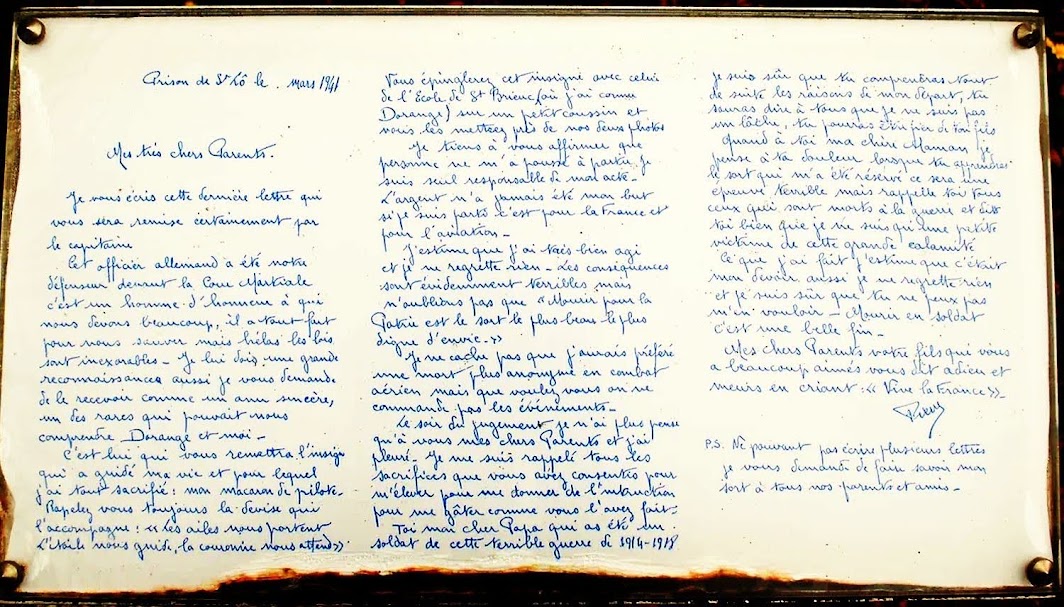 Prison de St Lô le . mars 1941
Mes très chers Parents.
Je vous écris cette dernière lettre qui
vous sera remise certainement par
le capitaine
Cet officier allemand a été notre
défenseur devant la Cour Martiale
c'est un homme d'honneur à qui
nous devons beaucoup, il a tout fait
pour nous sauver mais hélas les lois
sont inexorables - Je lui dois une grande
reconnaissance aussi je vous demande
de le recevoir comme un ami sincère,
un des rares qui pouvait nous
comprendre Dorange et moi -
C'est lui qui vous remettra l'insigne
qui a guidé ma vie et pour lequel
j'ai tout sacrifié : mon macaron de pilote -
Rapelez vous toujours la devise qui
l'accompagne : « Les ailes nous portent
L'étoile nous guide, la couronne nous attend »
Vous épinglerez cet insigne avec celui
de l'Ecole de St Brieuc (où j'ai connu
Dorange) sur un petit coussin et
vous les mettrez près de nos deux photos
Je tiens à vous affirmer que
personne ne m'a poussé à partir je
suis seul responsable de mon acte -
L'argent n'a jamais été mon but
si je suis parti c'est pour la France et
pour l'aviation -
J'estime que j'ai très bien agi
et je ne regrette rien - Les conséquences
sont évidemment terribles mais
n'oublions pas que « Mourir pour la
Patrie est le sort le plus beau le plus
digne d'envie. »
Je ne cache pas que j'aurais préféré
une mort plus anonyme en combat
aérien mais que voulez vous on ne
commande pas les événements -
Le soir du jugement je n'ai plus pensé
qu'à vous mes chers Parents et j'ai
pleuré. Je me suis rappelé tous les
sacrifices que vous avez consentis pour
m'élever pour me donner de l'intruction
pour me gâter comme vous l'avez fait -
Toi mon cher Papa qui as été un
soldat de cette terrible guerre de 1914-1918
je suis sûr que tu comprendras tout
de suite les raisons de mon départ, tu
sauras dire à tous que je ne suis pas
un lâche, tu pourras être fier de ton fils
Quand à toi ma chère Maman je
pense à ta douleur lorsque tu apprendras
le sort qui m'a été réservé ce sera une
épreuve terrible mais rappelle toi tous
ceux qui sont morts à la guerre et dis
toi bien que je ne suis qu'une petite
victime de cette grande calamité
Ce que j'ai fait j'estime que c'était
mon devoir aussi je ne regrette rien
et je suis sûr que tu ne peux pas
m'en vouloir - Mourir en soldat
c'est une belle fin -
Mes chers Parents votre fils qui vous
a beaucoup aimés vous dit adieu et
meurs en criant : « Vive la France » -
P.S. Ne pouvant pas écrire plusieurs lettres
je vous demande de faire savoir mon
sort à tous nos parents et amis -